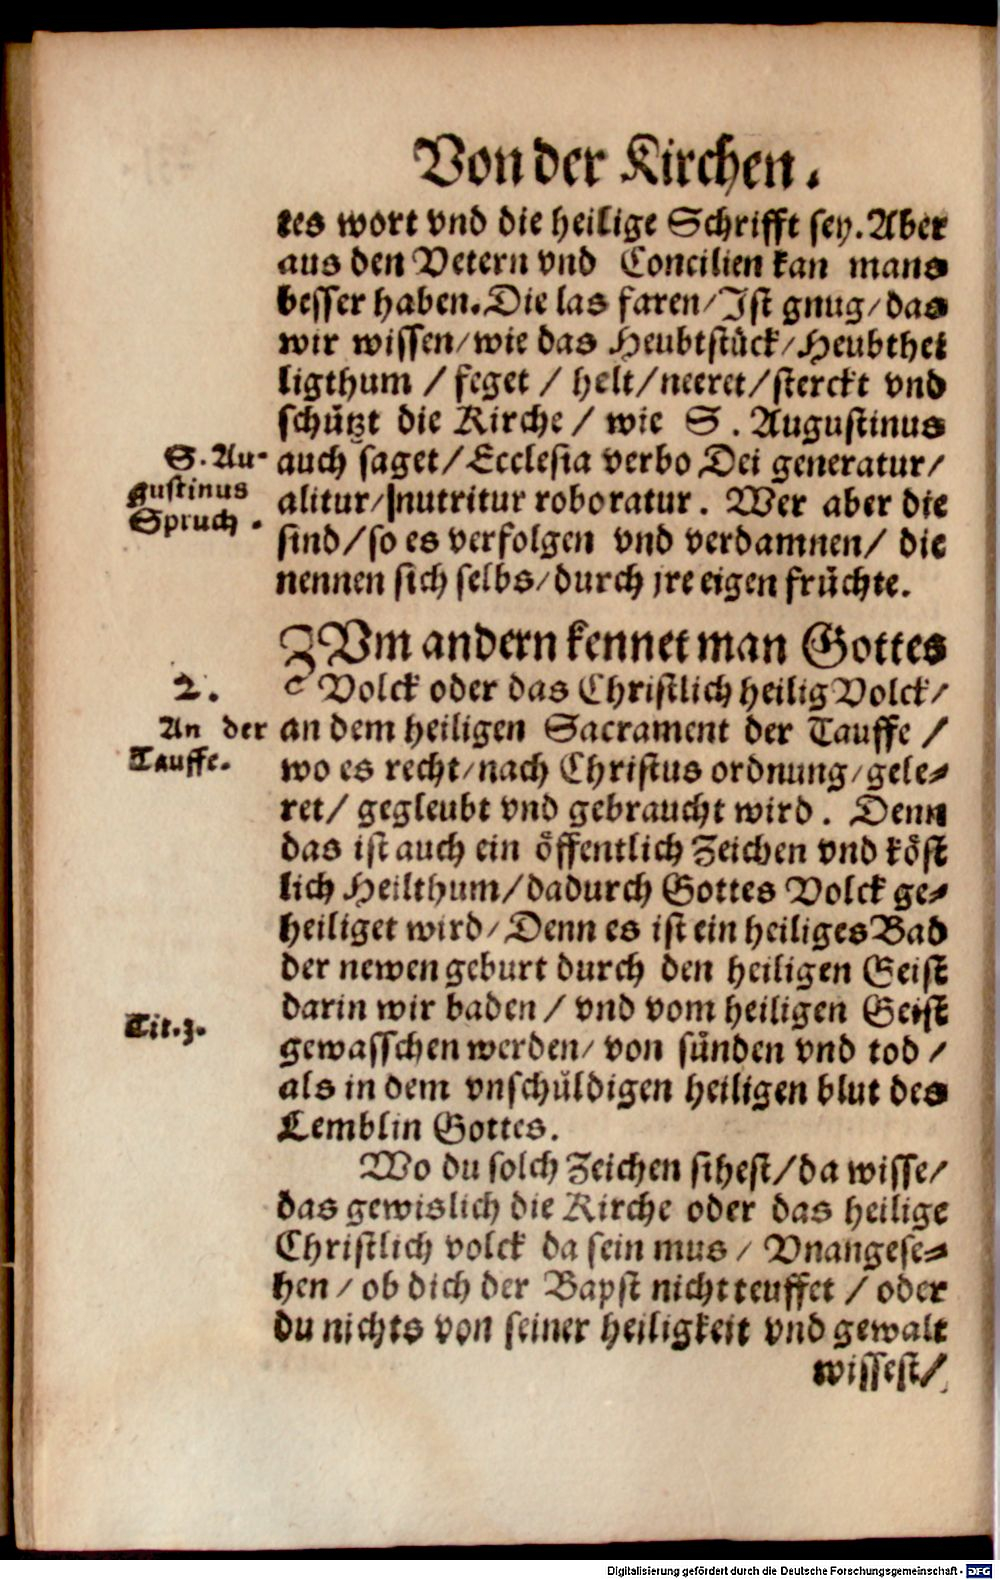 Von der Kirchen.
tes wort vnd die heilige Schrifft sey. Aber
aus den Vetern vnd Concilien kan mans
besser haben. Die las faren/ Ist gnug/ das
wir wissen/ wie das Heubtstück/ Heubthei
ligthum / feget / helt/ neeret/ sterckt vnd
schützt die Kirche / wie S. Augustinus
auch saget/ Ecclesia verbo Dei generatur/
alitur/ nutritur roboratur. Wer aber die
sind/ so es verfolgen vnd verdamnen/ die
nennen sich selbs/ durch jre eigen früchte.
S. Au-
gustinus
Spruch.
ZVm andern kennet man Gottes
Volck oder das Christlich heilig Volck/
an dem heiligen Sacrament der Tauffe /
wo es recht/ nach Christus ordnung/ gele-
ret/ gegleubt vnd gebraucht wird. Denn
das ist auch ein öffentlich Zeichen vnd köst
lich Heilthum/ dadurch Gottes Volck ge-
heiliget wird/ Denn es ist ein heiliges Bad
der newen geburt durch den heiligen Geist
darin wir baden / vnd vom heiligen Geist
gewasschen werden/ von sünden vnd tod /
als in dem vnschüldigen heiligen blut des
Lemblin Gottes.
2.
An der
Tauffe.
Tit.3.
Wo du solch Zeichen sihest/ da wisse/
das gewislich die Kirche oder das heilige
Christlich volck da sein mus / Vnangese-
hen / ob dich der Bapst nicht teuffet / oder
du nichts von seiner heiligkeit vnd gewalt
wissest/
Digitalisierung gefördert durch die Deutsche Forschungsgemeinschaft - DFG